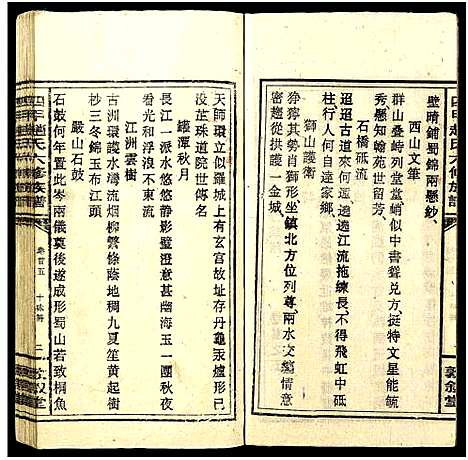 壁晴鋪蜀錦兩懸紗
西山文筆
群山叠峙列堂堂蛸似中書聳兌方挺特文星能毓
秀懸知翰苑世留芳
石橋砥流
迢迢古道來何遠遶江流拖練長不得飛虹中砥
柱行人何自達家鄉
獅山護衛
猙獰其勢肖獅形坐鎮北方位列尊兩水交縈情意
密趣從拱護一金城
敦叙堂
天師環立似羅城上有玄宮故址存丹竈汞爐形已
沒芷珠道院世傳名
鑵潭秋月
長江一派水悠悠靜影璧澄意甚幽海玉一團秋夜
看光和浮浪不東流
江洲雲樹
古洲環護水灣流烟柳繁條蔭地稠九夏笙黄起樹
杪三冬錦玉布江頭
嚴山石鼓
石鼓何年置此岑兩儀莫後遂成形蜀山若致桐魚
趙氏六修族譜
卷首五
二
敦叙堂